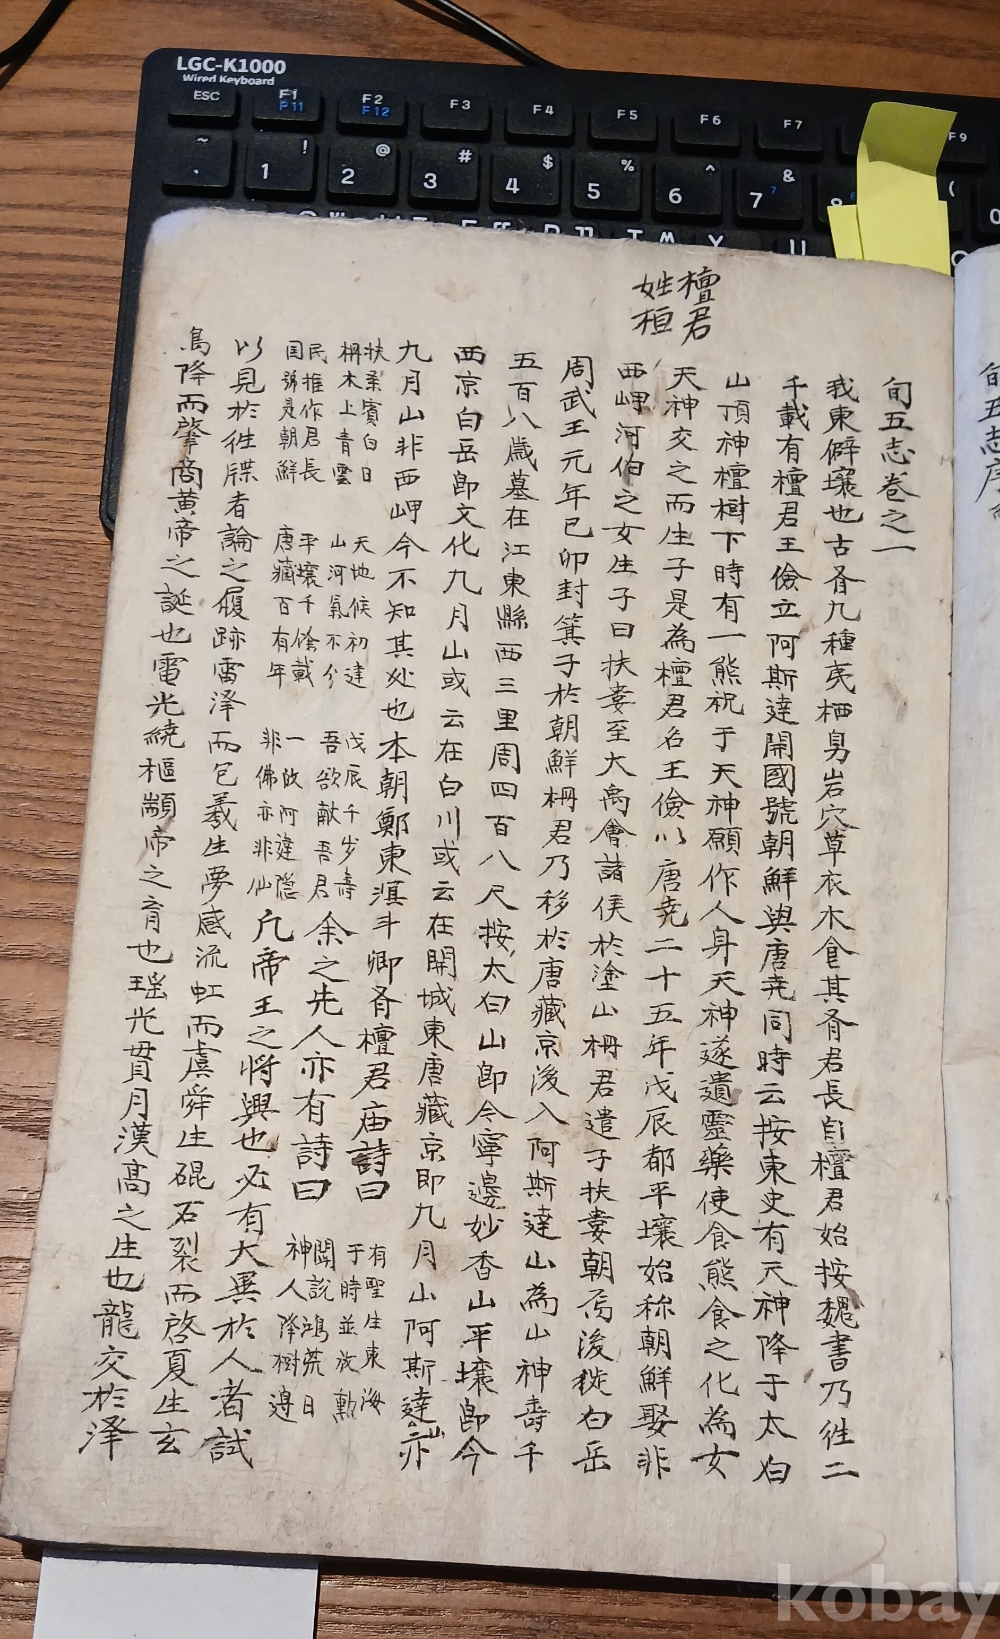 LGC-K1000
Wired Keyboard
ESC F1 F11 F2 F12 F3 F4 F5 F6 F7 F9
~ ! 1 @ 2 # 3 $ 4 % 5 ^ 6 & 7 7 8 ( 0
旬五志序
檀君
姓桓
旬五志卷之一
我東僻壤也古有九種夷栖身岩穴草衣木食其有君長自檀君始按魏書乃往二
千載有檀君王儉立阿斯達開國號朝鮮與唐尭同時云按東史有天神降于太白
山頂神檀樹下時有一熊祝于天神願作人身天神遂遺靈藥使食熊食之化為女
天神交之而生子是為檀君名王儉以唐尭二十五年戊辰都平壤始称朝鮮娶非
西岬河伯之女生子曰扶婁至大禹會諸侯於塗山枬君遣子扶婁朝焉後徙白岳
周武王元年已卯封箕子於朝鮮枬君乃移於唐藏京後入阿斯達山為山神壽千
五百八歲墓在江東縣西三里周四百八尺按太白山卽今寧邊妙香山平壤卽今
西京白岳卽文化九月山或云在白川或云在開城東唐藏京即九月山阿斯達山亦
九月山非西岬今不知其处也本朝鄭東溟斗卿有檀君庙詩曰
有聖生東海
于時並放勳
扶桑賓白日
枬木上青雲
天地候初建
山河氣不分
戊辰千岁壽
吾欲敵吾君
余之先人亦有詩曰
聞說鴻荒日
神人降樹邊
民推作君長
国號是朝鮮
平壤千餘載
唐藏百有年
一 阿達隐
非佛亦非仙
凡帝王之將興也必有大異於人者試
以見於往牒者論之履跡雷泽而包羲生夢感流虹而虞舜生琨石裂而啓夏生玄
鳥降而肇商黄帝之誕也電光繞樞顓帝之育也瑶光貫月漢高之生也龍交於泽
kobay